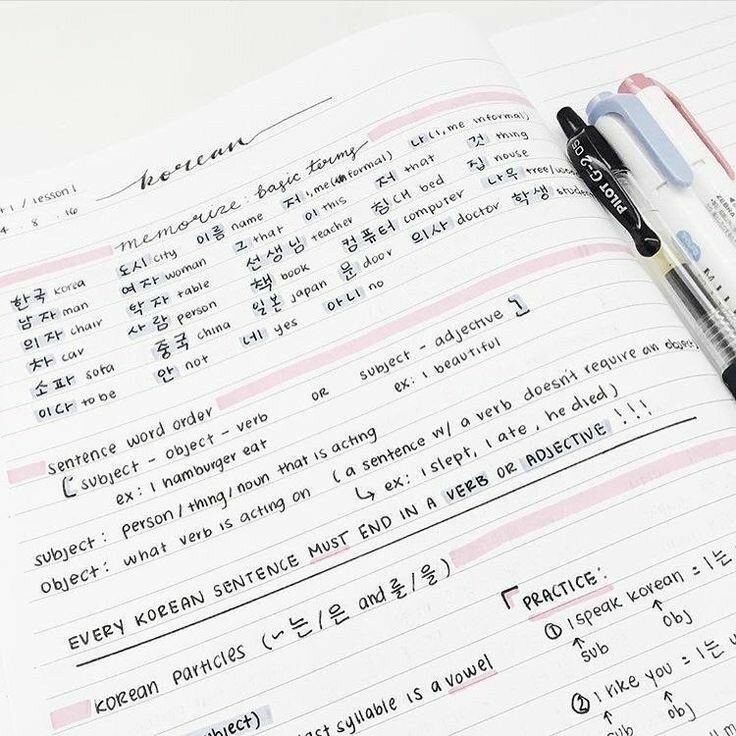 korean
/ lesson 1
8 16
memorize: basic terms
한국 korea 도시 city 이름 name 저 I, me (informal) 나 (I, me informal) 것 thing
남자 man 여자 woman 그 that 이 this 저 that 집 house
의자 chair 탁자 table 선생님 teacher 침대 bed 나무 tree/wood
차 car 사람 person 책 book 컴퓨터 computer 학생
소파 sofa 중국 china 일본 japan 문 door 의사 doctor
이다 to be 안 not 네 yes 아니 no
sentence word order
subject - object - verb OR subject - adjective
ex: I hamburger eat ex: I beautiful
subject: person/thing/noun that is acting
object: what verb is acting on (a sentence w/ a verb doesn't require an object
ex: I slept, I ate, he died)
EVERY KOREAN SENTENCE MUST END IN A VERB OR ADJECTIVE !!!
KOREAN Particles (~는/은 and 를/을)
PRACTICE:
① I speak korean = I는
sub obj
② I like you = I는
sub obj
syllable is a vowel
PILOT G-2 05